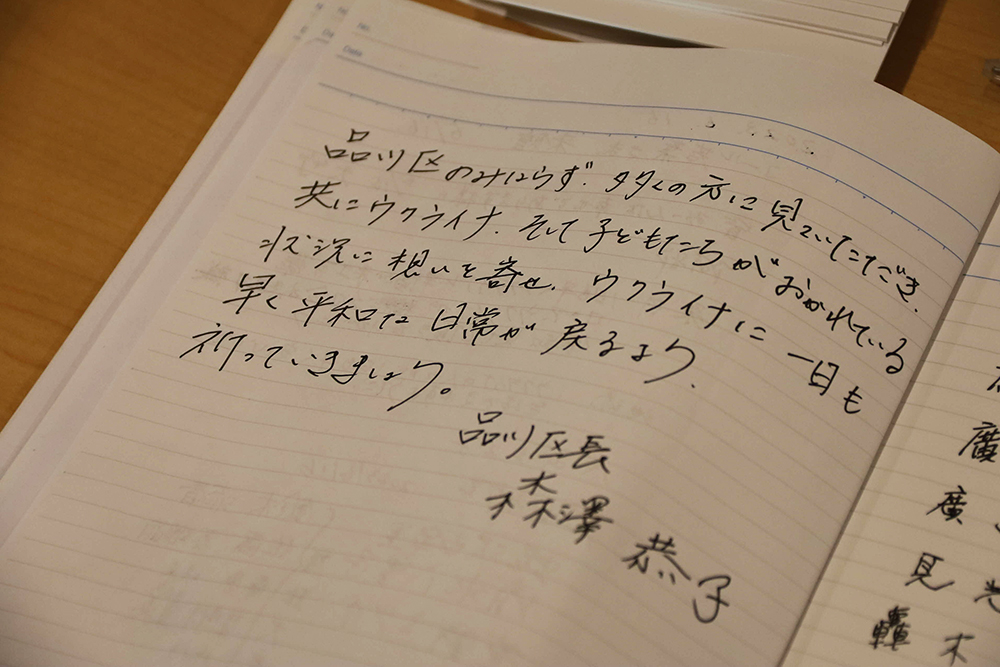 品川区のみならず、多くの方に見ていただき、
共にウクライナ、そして子どもたちがおかれている
状況に想いを寄せ、ウクライナに一日も
早く平和な日常が戻るよう、
祈っていきましょう。
品川区長
森澤 恭子
No.
Date
廣
廣
見
轟 木